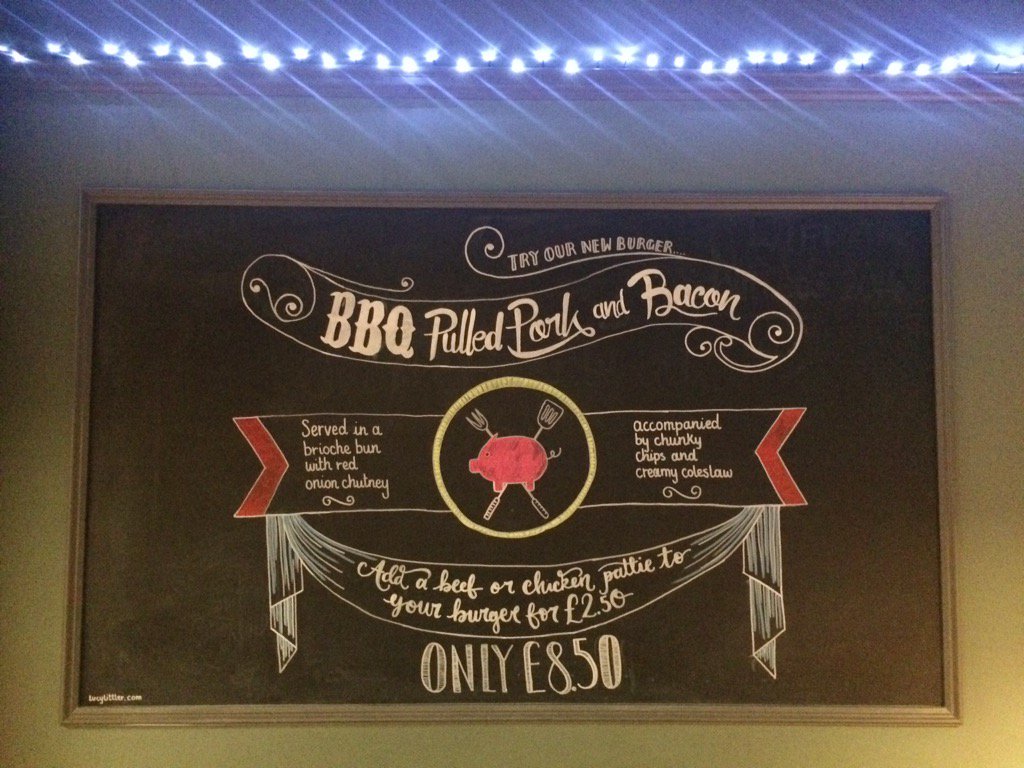 TRY OUR NEW BURGER...
BBQ Pulled Pork and Bacon
Served in a
brioche bun
with red
onion chutney
accompanied
by chunky
chips and
creamy coleslaw
Add a beef or chicken pattie to
your burger for £2.50
ONLY £8.50
lucylittler.com